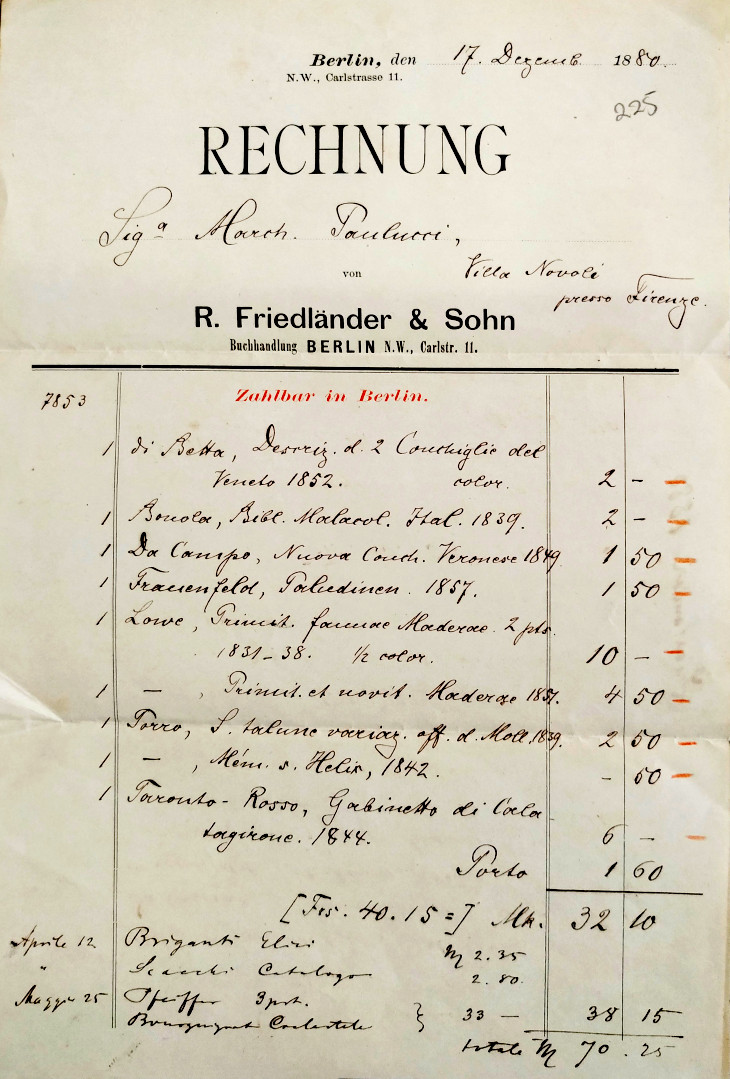 Berlin, den 17. Dezemb. 1880.
N.W., Carlstrasse 11.
225
RECHNUNG
Sigª March. Paulucci,
von
Villa Novoli
presso Firenze.
R. Friedländer & Sohn
Buchhandlung BERLIN N.W., Carlstr. 11.
7853 Zahlbar in Berlin.
1 di Betta, Descriz. d. 2 Conchiglie del
Veneto 1852. color. 2 –
1 Bibl. Malacol. Ital. 1839. 2 –
1 Da Campo, Nuova Conch. Veronese 1849 1 50
1 Frauenfeld, Paludinen. 1857. 1 50
1 Lowe, Primit. faunae Maderae. 2 pts.
1831–38. ½ color. 10 –
1 – , Primit. et novit. Maderae 1851. 4 50
1 Porro, S. talune variaz. off. d. Moll. 1839. 2 50
1 – , Mém. s. Helix, 1842. – 50
1 Taranto-Rosso, Gabinetto di Cala
tagirone. 1844. 6 –
Porto 1 60
[Frs. 40.15 =] Mk. 32 10
Aprile 12 Briganti M 2.35
" Scacchi Catalogo 2.80
Maggio 25 Pfeiffer 3 prt.
} 33 – 38 15
totale M 70.25